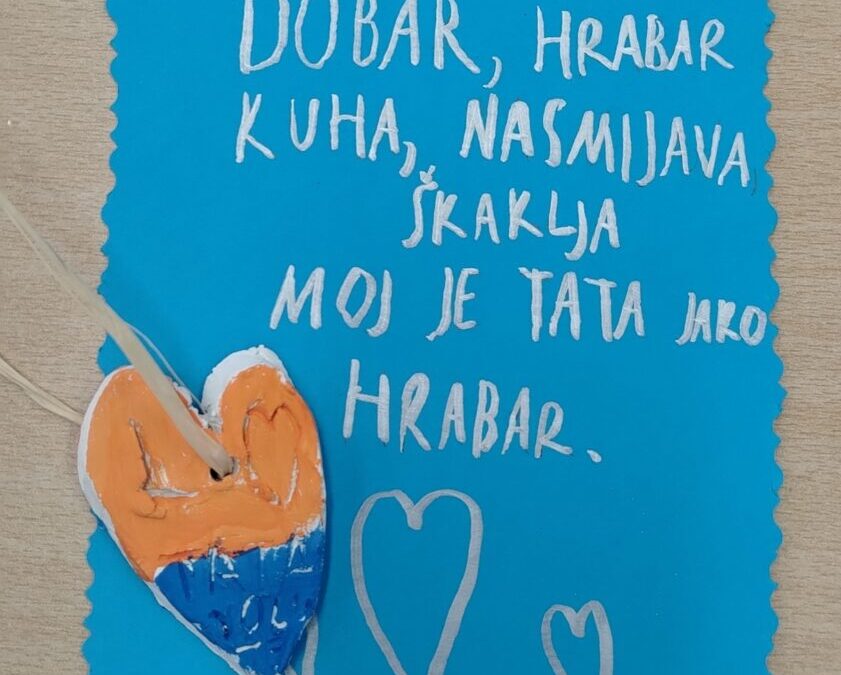 DOBAR, HRABAR
KUHA, NASMIJAVA,
ŠKAKLJA
MOJ JE TATA JAKO
HRABAR.